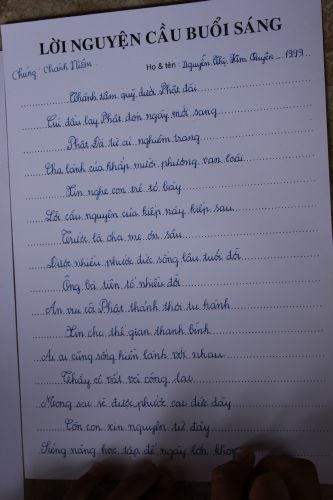 LỜI NGUYỆN CẦU BUỔI SÁNG
Chúng: Chánh Niệm Họ & tên: Nguyễn Thị Kim Quyên _ 1999
Thành tâm quỳ dưới Phật đài
Cúi đầu lạy Phật đón ngày mới sang
Phật Đà từ ai nghiêm trang
Cha lành của khắp mười phương vạn loài
Xin nghe con trẻ tỏ bày
Lời cầu nguyện của kiếp này kiếp sau
Trước là cha mẹ ơn sâu
Được nhiều phước đức sống lâu tuổi đời
Ông bà tiên tổ nhiều đời
An vui cõi Phật thảnh thơi tu hành
Xin cho thế gian thanh bình
Ai ai cũng sống hiền lành với nhau
Thầy cô vất vả công lao
Mong sao sẽ được phước cao đức dày
Còn con xin nguyện từ đây
Siêng năng học tập để ngày lớn khôn